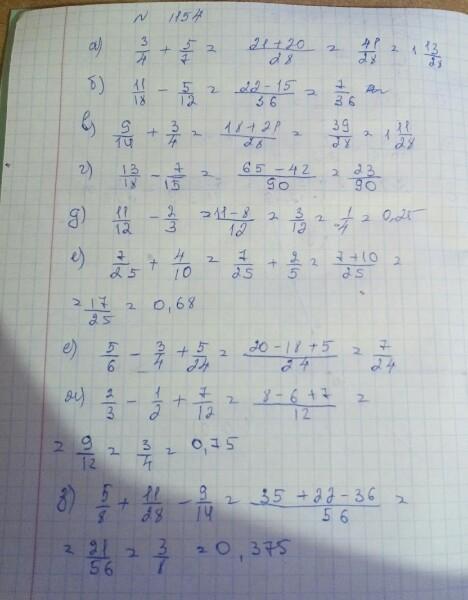 № 1154
а) 3/4 + 5/7 = 21+20/28 = 41/28 = 1 13/28
б) 11/18 - 5/12 = 22-15/36 = 7/36
в) 9/14 + 3/4 = 18+21/28 = 39/28 = 1 11/28
г) 13/18 - 7/15 = 65-42/90 = 23/90
д) 11/12 - 2/3 = 11-8/12 = 3/12 = 1/4 = 0,25
е) 7/25 + 4/10 = 7/25 + 2/5 = 7+10/25 =
= 17/25 = 0,68
е) 5/6 - 3/4 + 5/24 = 20-18+5/24 = 7/24
ж) 2/3 - 1/2 + 7/12 = 8-6+7/12 =
= 9/12 = 3/4 = 0,75
з) 5/8 + 11/28 - 9/14 = 35+22-36/56 =
= 21/56 = 3/8 = 0,375